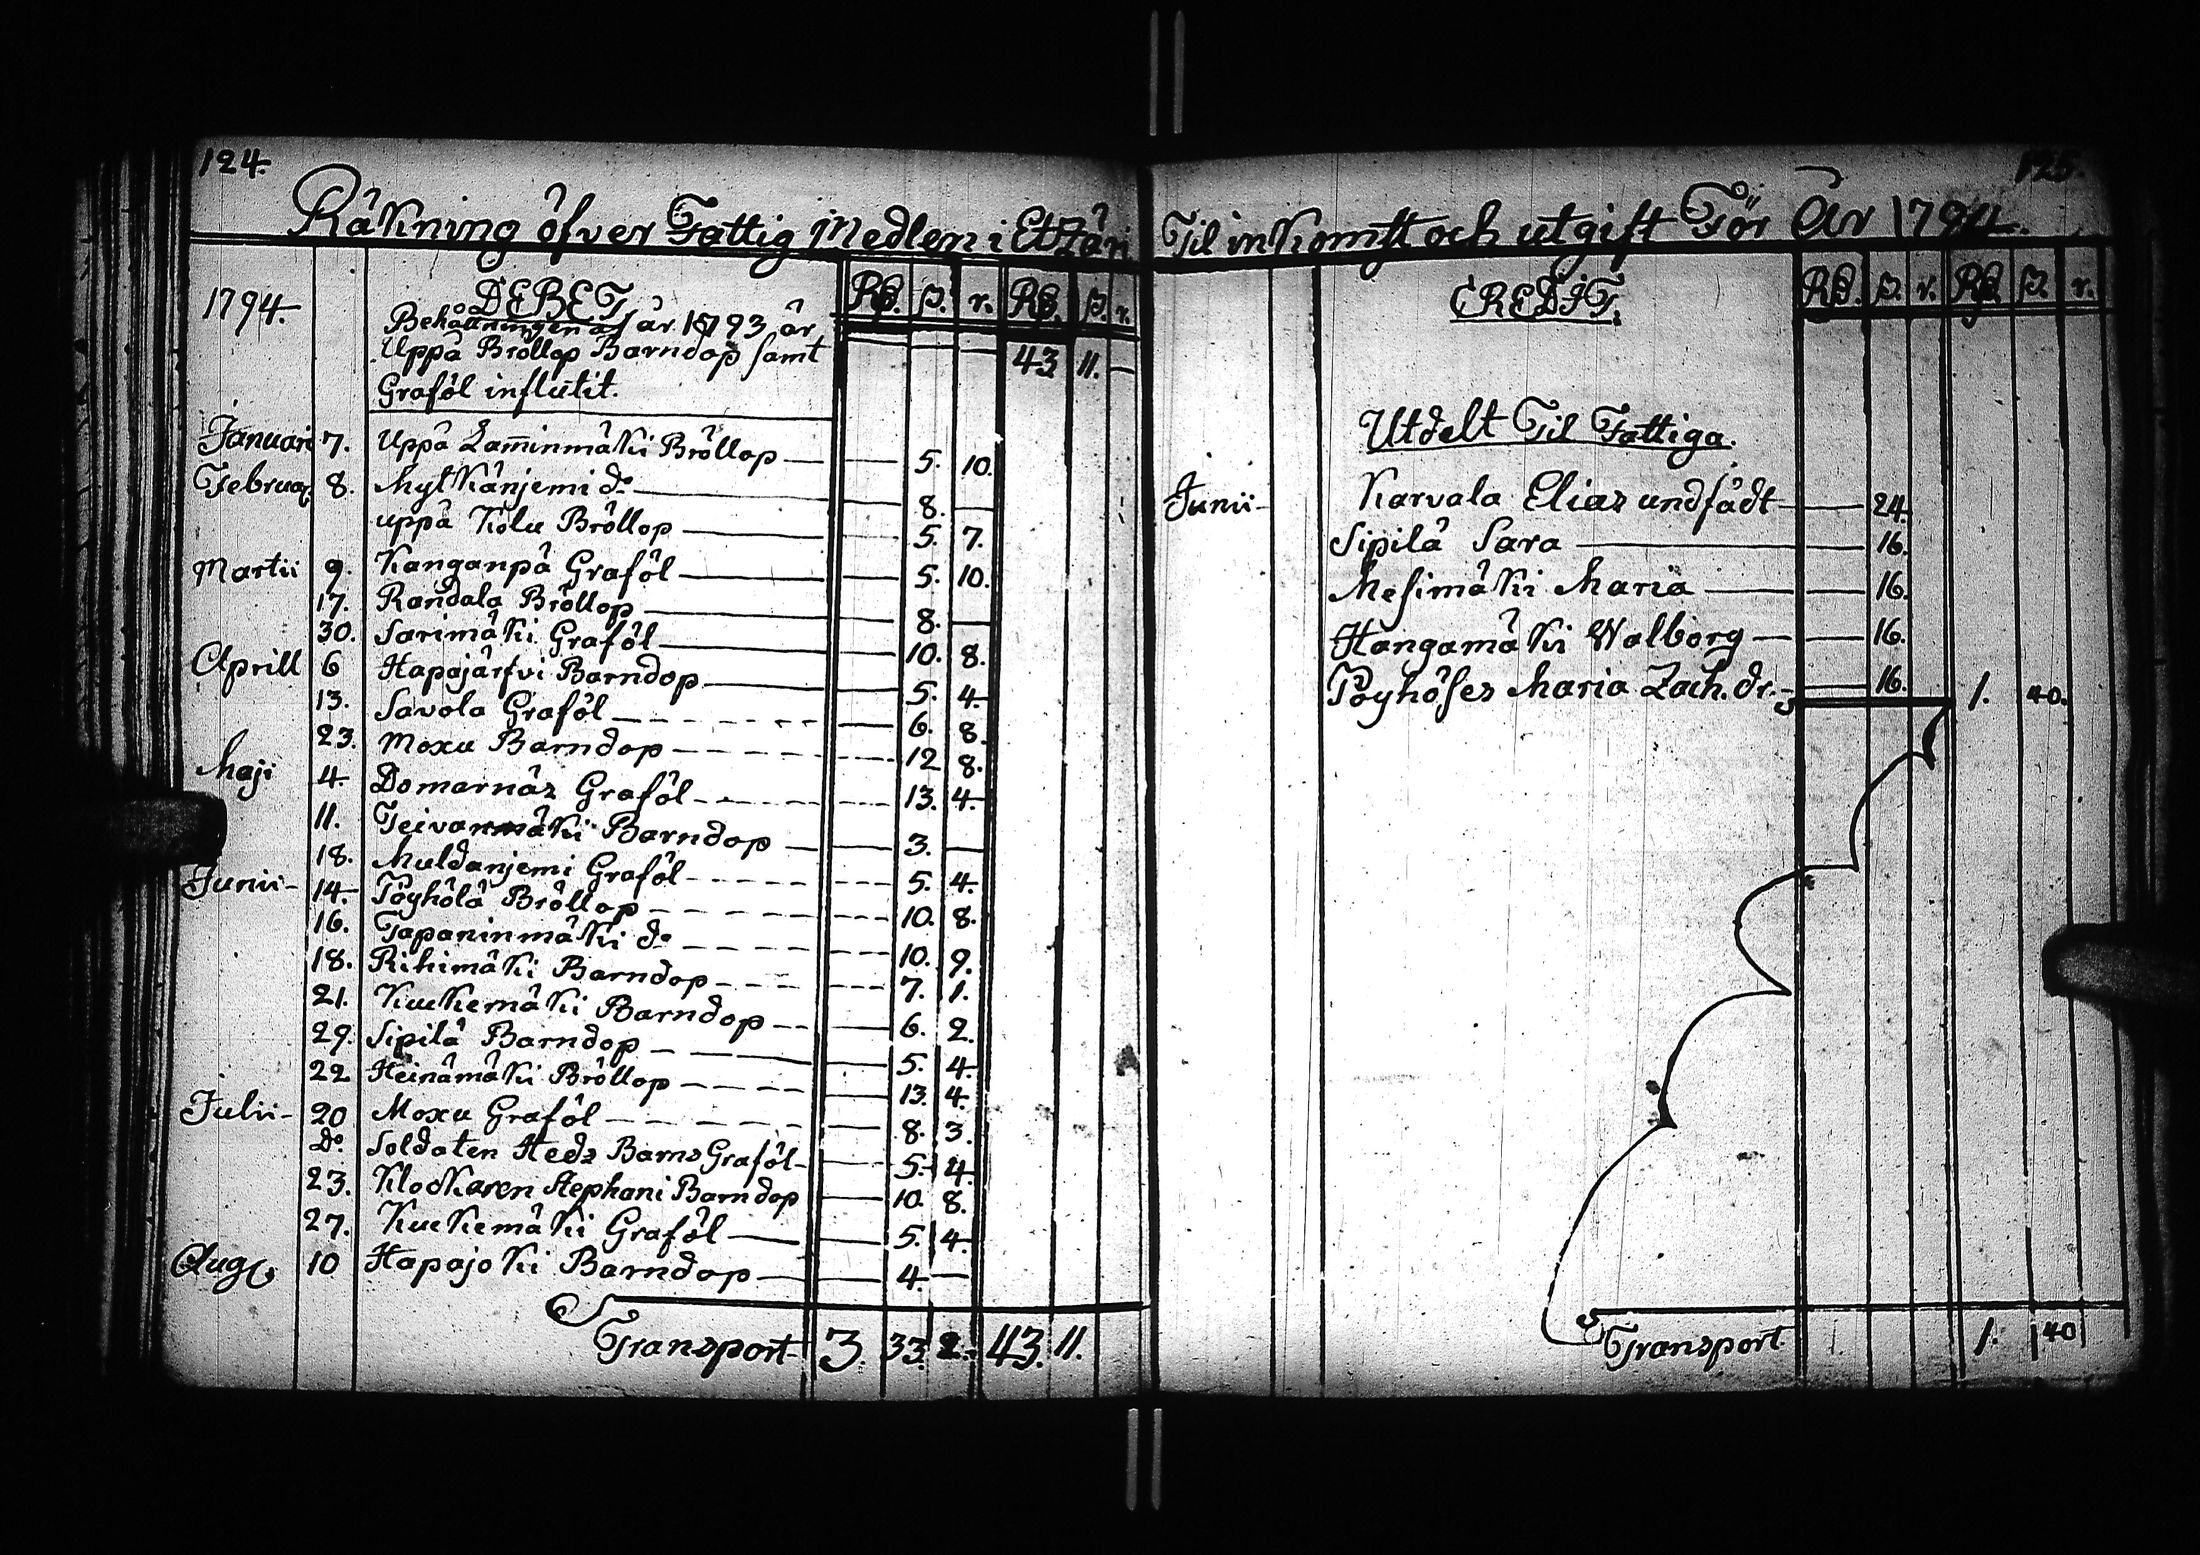 124.
Räkning öfver Fattig Medlen i Etzäri
1794.
DEBET
Rd. s. r. Rd. s. r.
Behållningen af år 1793 är
Uppå Bröllop Barndop samt 43 11. —
Graföl influtit.
Januari 7. Uppå Lam̄inmäki Bröllop — 5. 10.
Februar. 8. Mylkänjemi do — 8. —
uppå Kolu Bröllop — 5. 7.
Martii 9. Kanganpä Graföl — 5. 10.
17. Randala Bröllop — 8. —
30. Sarimäki Graföl — 10. 8.
Aprill 6 Hapajärfvi Barndop — 5. 4.
13. Savola Graföl — 6. 8.
23. Moxu Barndop — 12 8.
Maji 4. Domarnäs Graföl — 13. 4.
11. Teivanmäki Barndop — 3. —
18. Muldanjemi Graföl — 5. 4.
Junii — 14. Pöyhölä Bröllop — 10. 8.
16. Tapaninmäki do — 10. 9.
18. Rihimäki Barndop — 7. 1.
21. Kuckemäki Barndop — 6. 2.
29. Sipilä Barndop — 5. 4.
22 Heinämäki Bröllop — 13. 4.
Julii — 20 Moxu Graföl — 8. 3.
Do. Soldaten Heds Barns Graföl — 5. 4.
23. Klockaren Stephani Barndop — 10. 8.
27. Kuckemäki Graföl — 5. 4.
Aug. 10 Hapajoki Barndop — 4. —
Transport 3. 33. 2. 43. 11.
125.
Til inkomst och utgift För År 1794.
CREDIT.
Rd. s. r. Rd. s. r.
Utdelt Til Fattiga.
Junii — Karvala Elias undfådt — 24.
Sipilä Sara — 16.
Mesimäki Maria — 16.
Hangamäki Walborg — 16.
Pöyhöses Maria Zach. dr. — 16. 1. 40.
Transport 1. 40